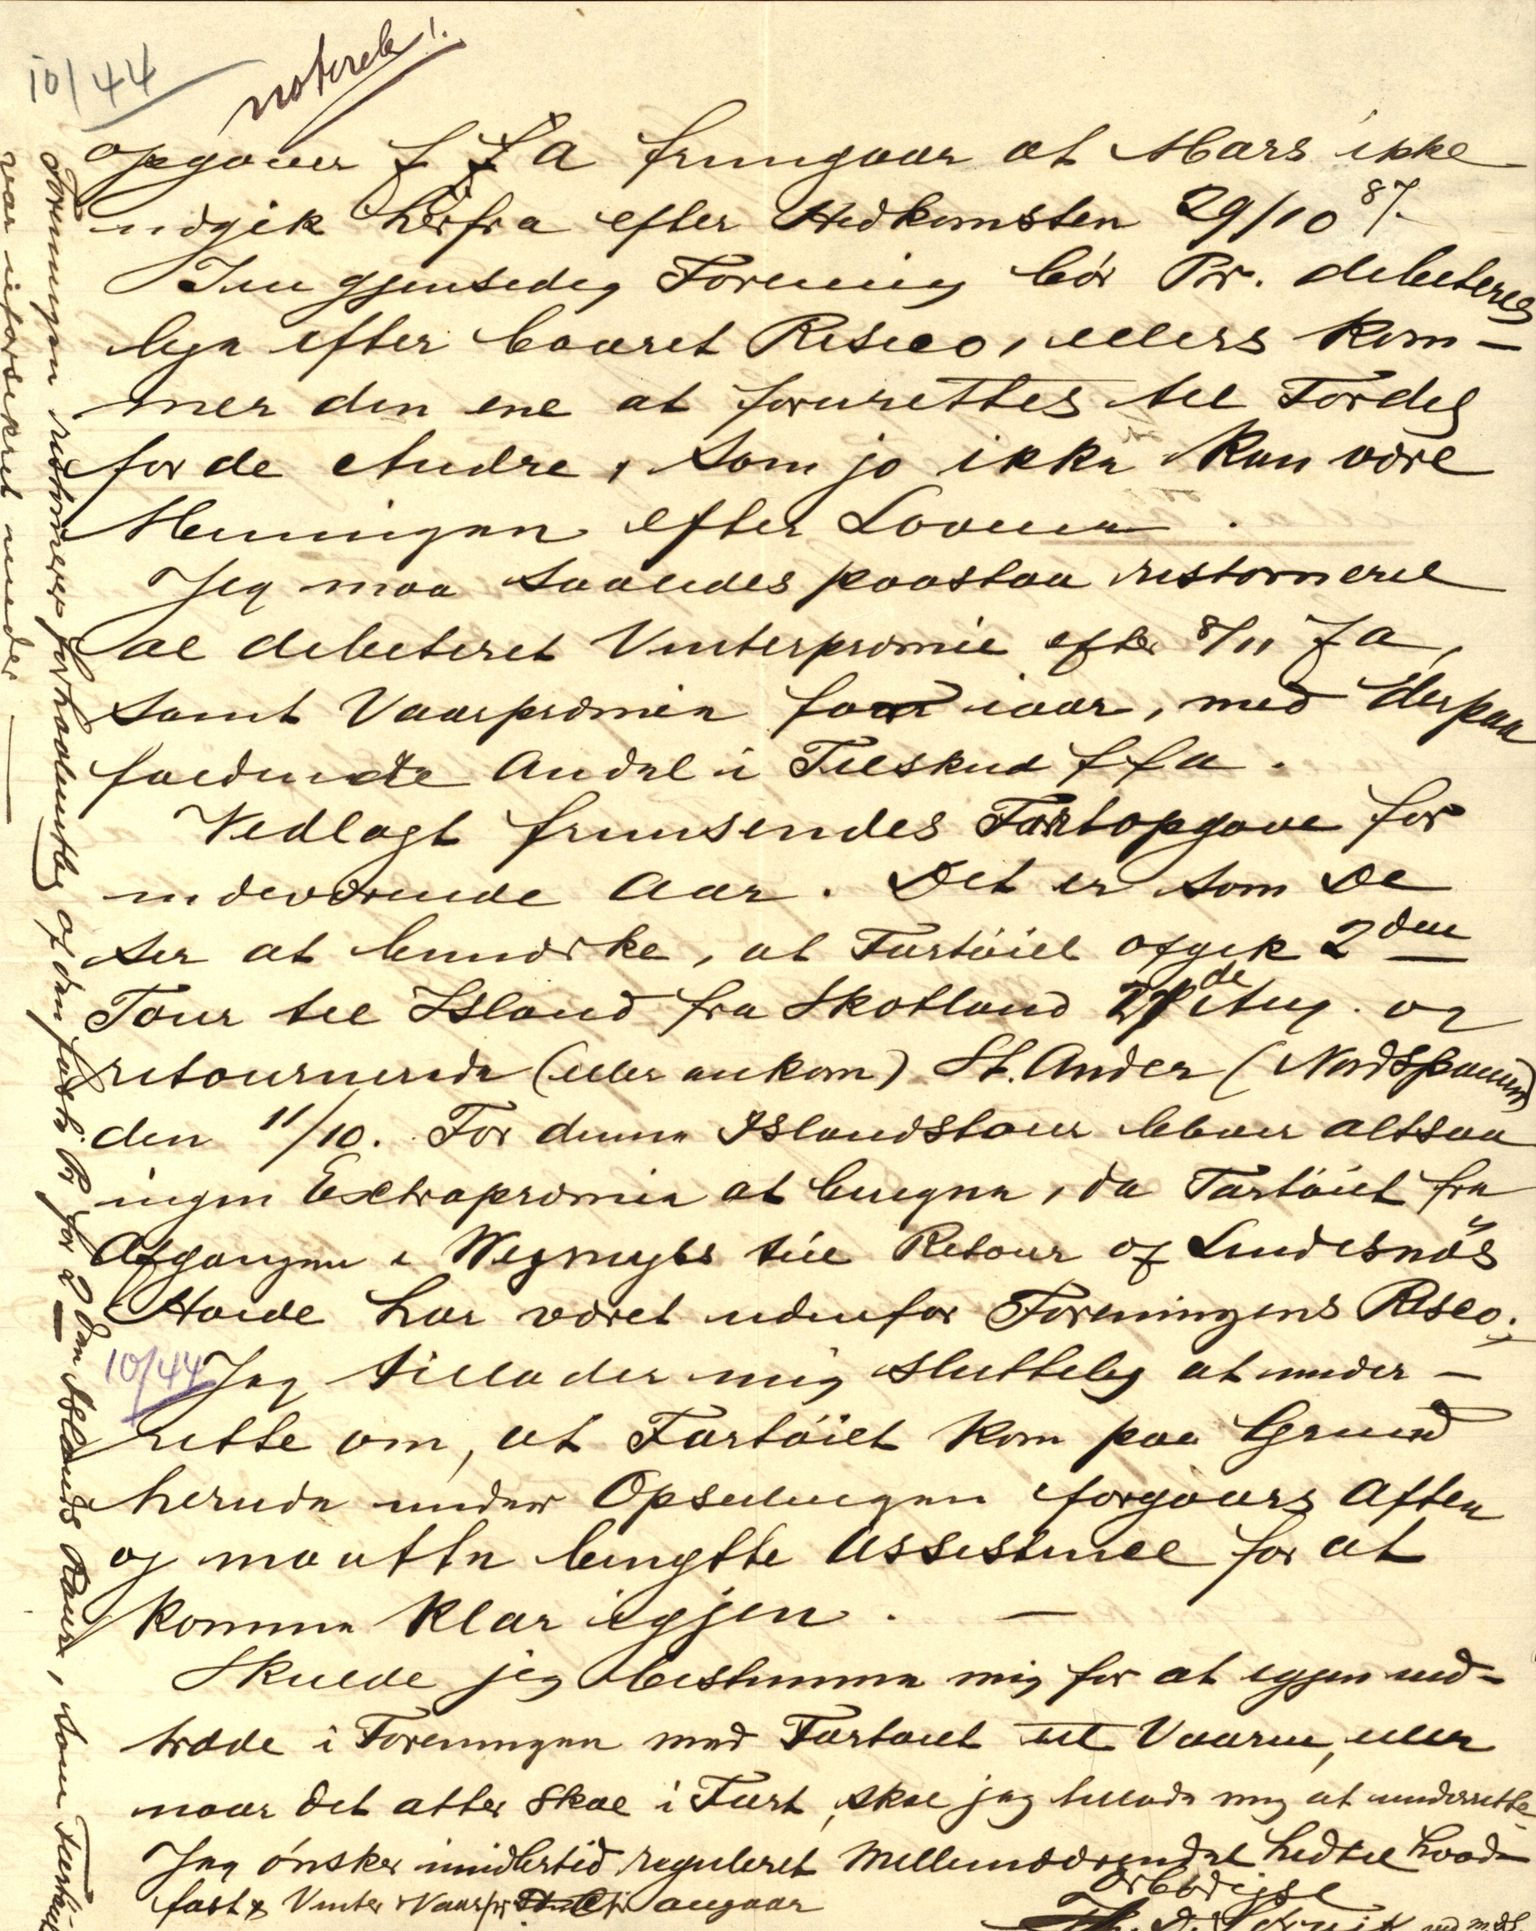 10/44
noteret!
opgaver f f A fremgaar at Mars ikke
udgik herfra efter Hidkomsten 29/10 87.
I en gjensidig Forening bør Pr. debiteres
lign efter baaret Risico, ellers kom-
mer den ene at forurettes til Fordel
for de Andre, som jo ikke kan være
Meningen efter Lovene.
Jeg maa saaledes paastaa ristorneret
al debiteret Vinterpræmie efter 8/11 f a,
samt Vaarpræmien for iaar, med derpaa
faldende Andel i Tilskud f f a.
Vedlagt fremsendes Fartopgave for
indeværende Aar. Det er som De
ser at bemærke, at Fartøiet afgik 2den
Tour til Island fra Skotland 27de Aug. og
retournerede (eller ankom) St. Ander (NordSpanien)
den 11/10. For denne Islandstour bliver altsaa
ingen Extrapræmie at beregne, da Fartøiet fra
Afgangen i Wegmybs till Retour af Lindesnæs
Høide har været udenfor Foreningens Risco.
10/44
Jeg tillader mig sluttelig at under-
rette om, at Fartøiet kom paa Grund
herude under Opseilingen forgaars Aften
og maatte benytte Assistance for at
komme klar igjen. —
Skulde jeg bestemme mig for at igjen ind-
træde i Foreningen med Fartøiet til Vaaren, eller
naar det atter skal i Fart, skal jeg tillade mig at underrette.
Jeg ønsker imidlertid reguleret Mellemværendet hidtil hvad
fast & Vinter & Vaarpr angaar
Ærbødigst
Foreningen ristornerer forholdsmæssig af den faste Pr for 2den Islands Reise, som Fartøiet
var uforsikret under —